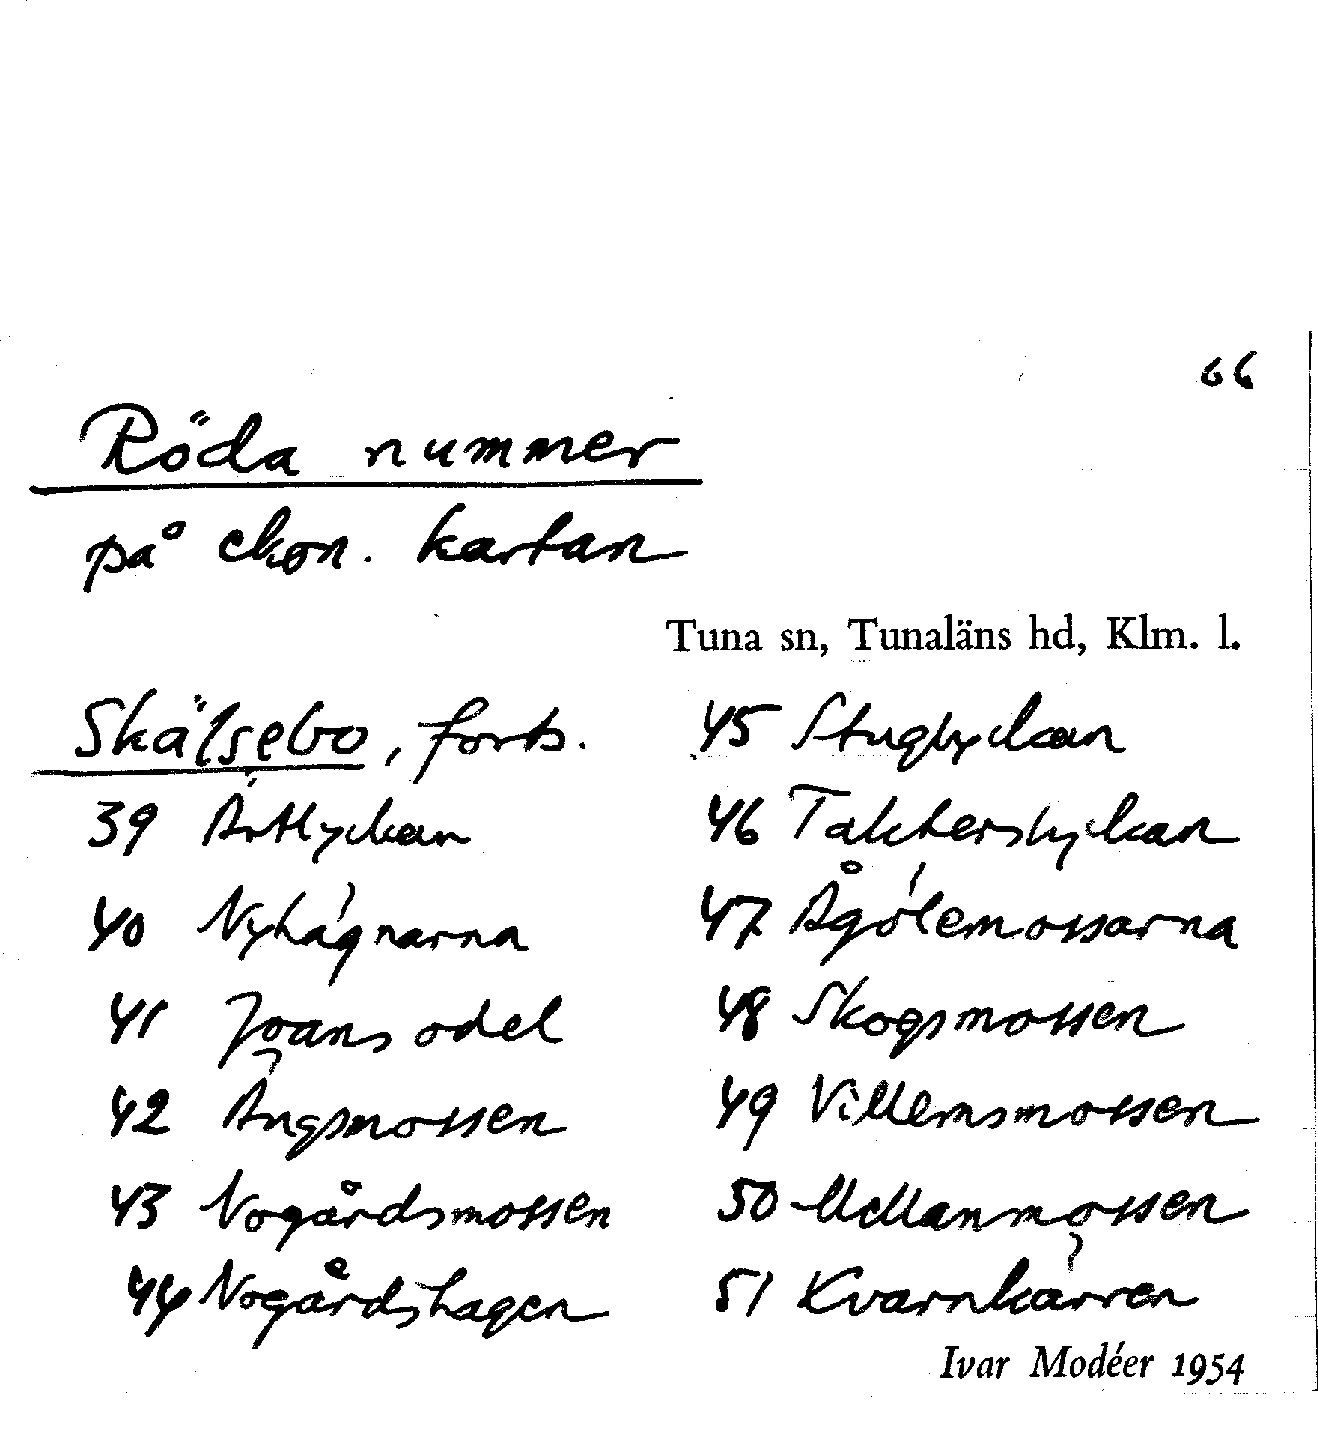 66
Röda nummer
på ekon. kartan
Tuna sn, Tunaläns hd, Klm. l.
Skälsebo, forts.
39 Ärtlyckan
40 Nyhägnarna
41 Joans odel
42 Ängsmossen
43 Nogårdsmossen
44 Nogårdshagen
45 Stuglyckan
46 Täkterslyckan
47 Ågölemossarna
48 Skogsmossen
49 Villemsmossen
50 Mellanmossen
51 Kvarnkärren
Ivar Modéer 1954